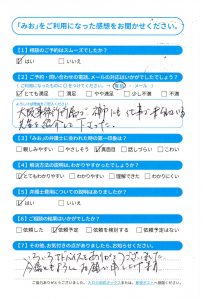 「みお」をご利用になった感想をお聞かせください。
【1】相談のご予約はスムーズでしたか？
☑はい □いいえ
【2】ご予約・問い合わせの電話、メールの対応はいかがでしたでしょうか？
（ご利用になったものに○をつけてください。→ 電話 ・ メール ）
☑とても満足 □満足 □やや満足 □少し不満 □不満
大阪事務所が 神戸にも
【3】「みお」の弁護士に会われた時の第一印象は？
□親しみやすい □やさしそう ☑真面目 □話しづらい □こわい
【4】解決方法の説明は、わかりやすかったでしょうか？
☑とてもわかりやすい □わかりやすい □理解できた □わかりにくい
【5】弁護士費用についての説明はありましたか？
☑はい □いいえ
【6】ご相談の結果はいかがでしたか？
□依頼した ☑依頼予定 □依頼を検討する □依頼予定はない
【7】その他、お気付きの点がありましたら、お知らせください。
いろいろとありがとうございました。
今後もよろしくお願い申し上げます
ご協力ありがとうございました。